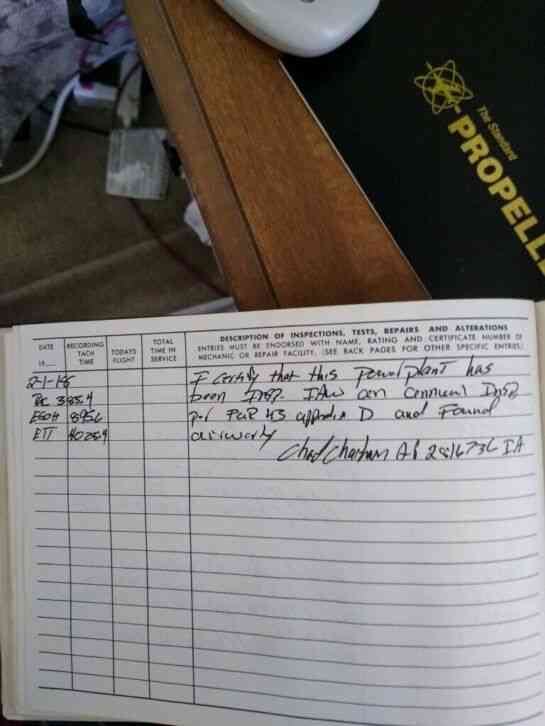 The Standard
PROPELLE
DATE
19......
RECORDING TACH TIME
TODAYS FLIGHT
TOTAL TIME IN SERVICE
DESCRIPTION OF INSPECTIONS, TESTS, REPAIRS AND ALTERATIONS
ENTRIES MUST BE ENDORSED WITH NAME, RATING AND CERTIFICATE NUMBER OF
MECHANIC OR REPAIR FACILITY. (SEE BACK PAGES FOR OTHER SPECIFIC ENTRIES.)
2-1-18 I certify that this powerplant has
been Insp. IAW an annual Insp
ESOH 895.6 per FAR 43 appendix D and Found
ETT airworty
Chad AP IA